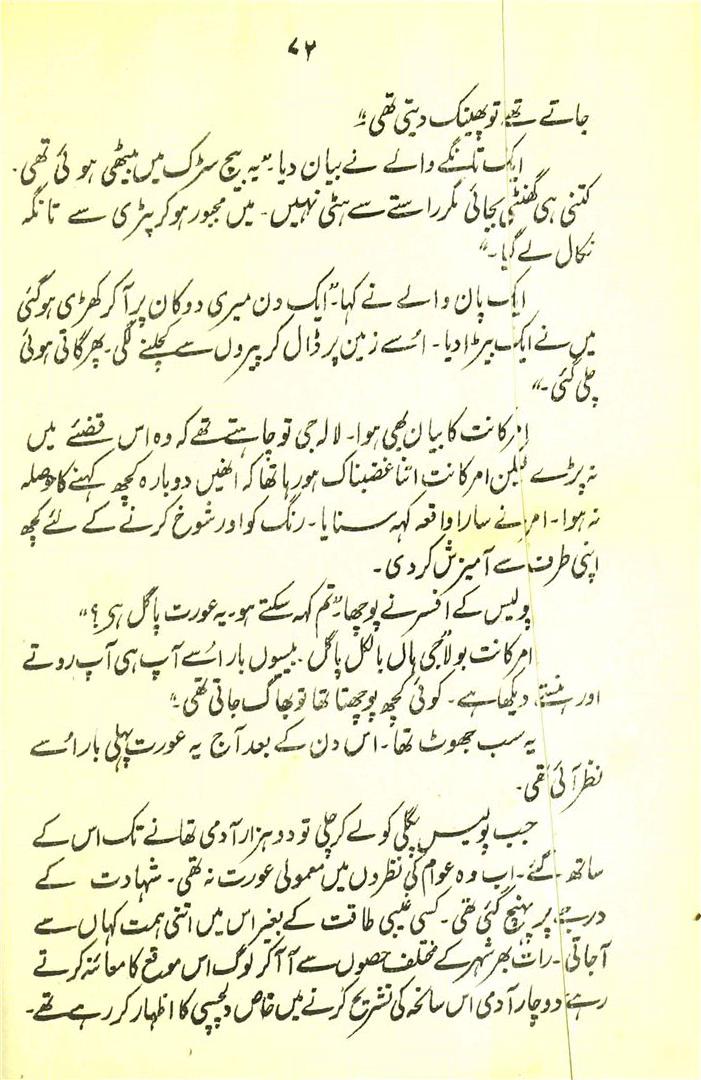 ۷۲
جاتے تھے تو پھینک دیتی تھی۔"
ایک تانگے والے نے بیان دیا۔ "یہ بیچ سڑک میں بیٹھی ہوئی تھی۔
کتنی ہی گھنٹی بجائی مگر راستے سے ہٹی نہیں۔ میں مجبور ہو کر پٹری سے تانگہ
نکال لے گیا۔"
ایک پان والے نے کہا۔ "ایک دن میری دوکان پر آ کر کھڑی ہو گئی
میں نے ایک بیڑا دیا۔ اُسے زمین پر ڈال کر پیروں سے کچلنے لگی۔ پھر گاتی ہوئی
چلی گئی۔"
امرکانت کا بیان بھی ہوا۔ لالہ جی تو چاہتے تھے کہ وہ اس قضئے میں
نہ پڑے لیکن امرکانت اتنا غضبناک ہو رہا تھا کہ انھیں دوبارہ کچھ کہنے کا حوصلہ
نہ ہوا۔ امر نے سارا واقعہ کہہ سنایا۔ رنگ کو اور شوخ کرنے کے لئے کچھ
اپنی طرف سے آمیزش کر دی۔
پولیس کے افسر نے پوچھا۔ "تم کہہ سکتے ہو۔ یہ عورت پاگل ہی؟"
امرکانت بولا "جی ہاں بالکل پاگل۔ بیسوں بار اُسے آپ ہی آپ روتے
اور ہنستے دیکھا ہے۔ کوئی کچھ پوچھتا تھا تو بھاگ جاتی تھی۔"
یہ سب جھوٹ تھا۔ اس دن کے بعد آج یہ عورت پہلی بار اُسے
نظر آئی تھی۔
جب پولیس پگلی کو لے کر چلی تو دو ہزار آدمی تھانے تک اس کے
ساتھ گئے۔ اب وہ عوام کی نظروں میں معمولی عورت نہ تھی۔ شہادت کے
درجے پر پہنچ گئی تھی۔ کسی غیبی طاقت کے بغیر اس میں اتنی ہمت کہاں سے
آ جاتی۔ رات بھر شہر کے مختلف حصوں سے آ آ کر لوگ اس موقع کا معائنہ کرتے
رہے دو چار آدمی اس سانحہ کی تشریح کرنے میں خاص دلچسپی کا اظہار کر رہے تھے۔